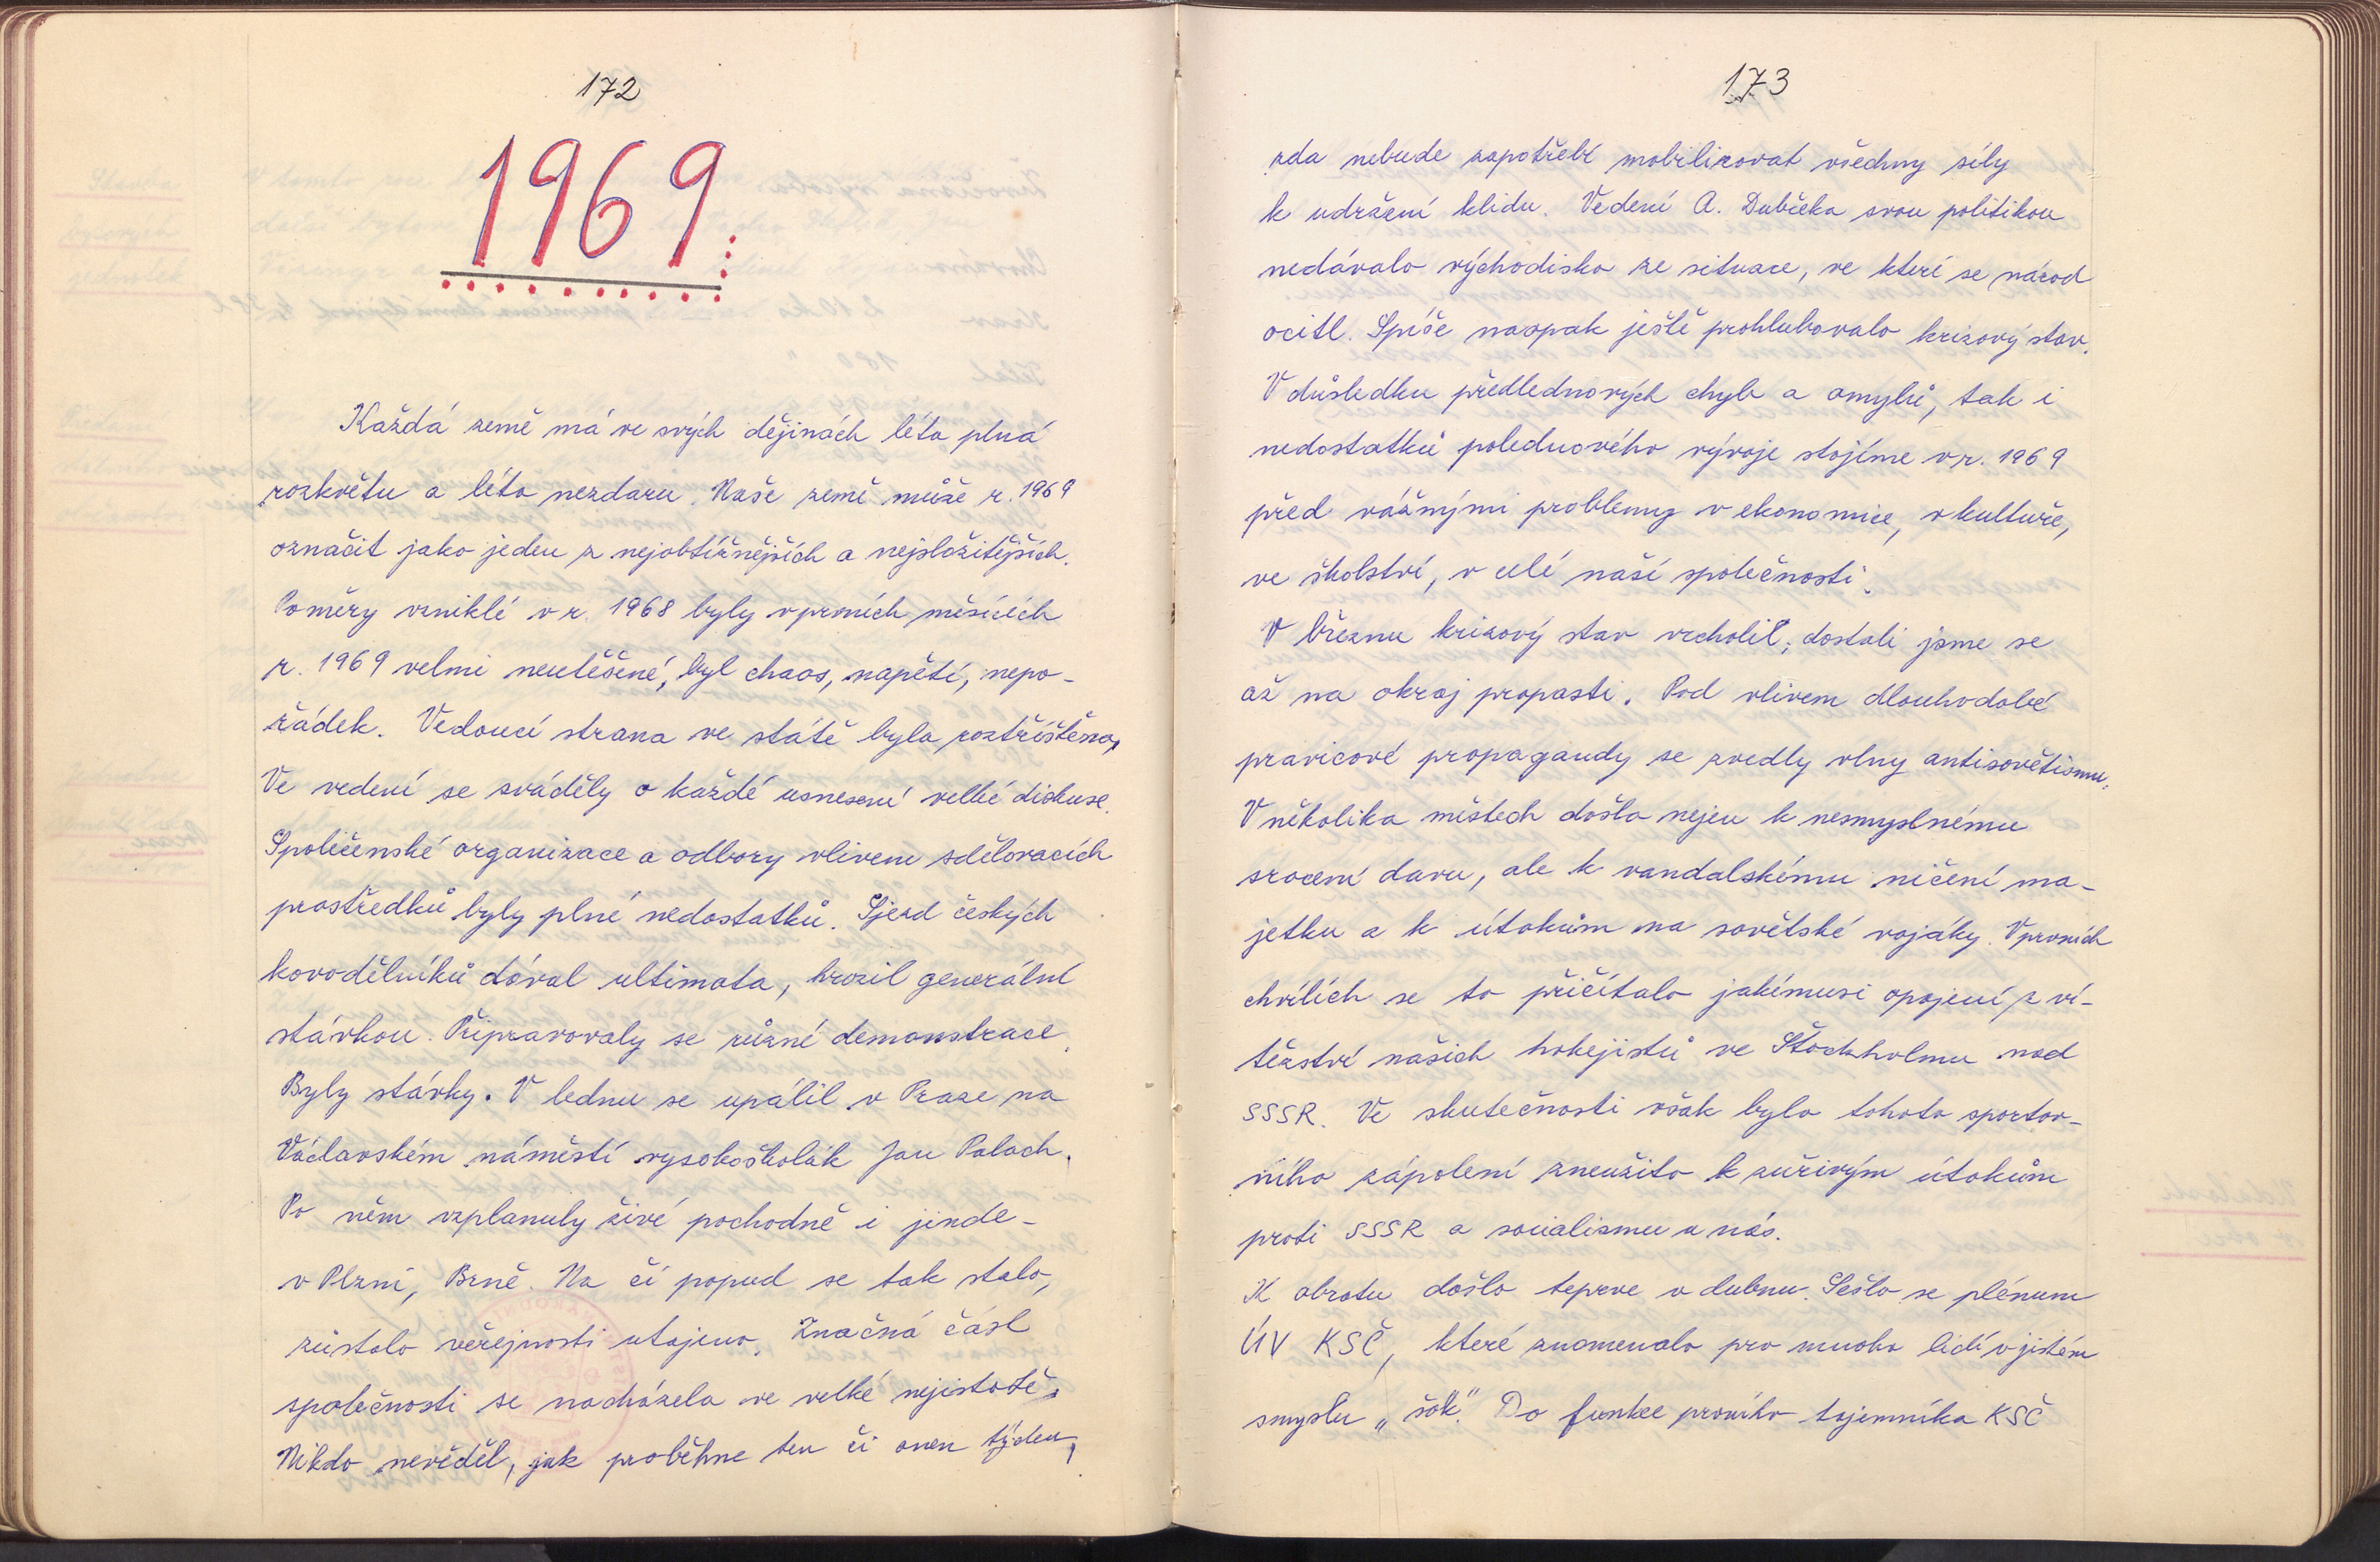 172
1969
Každá země má ve svých dějinách léta plná
rozkvětu a léta nezdaru. Naše země může r. 1969
označit jako jeden z nejobtížnějších a nejsložitějších.
Poměry vzniklé v r. 1968 byly v prvních měsících
r. 1969 velmi neutěšené, byl chaos, napětí, nepo-
řádek. Vedoucí strana ve státě byla roztříštěna,
Ve vedení se sváděly o každé usnesení velké diskuse.
Společenské organizace a odbory vlivem sdělovacích
prostředků byly plné nedostatků. Sjezd českých
kovodělníků dával ultimata, hrozil generální
stávkou. Připravovaly se různé demonstrace.
Byly stávky. V lednu se upálil v Praze na
Václavském náměstí vysokoškolák Jan Palach.
Po něm vzplanuly živé pochodně i jinde -
v Plzni, Brně. Na čí popud se tak stalo,
zůstalo veřejnosti utajeno. Značná část
společnosti se nacházela ve velké nejistotě.
Nikdo nevěděl, jak proběhne ten či onen týden,
173
zda nebude zapotřebí mobilizovat všechny síly
k udržení klidu. Vedení A. Dubčeka svou politikou
nedávalo východisko ze situace, ve které se národ
ocitl. Spíše naopak ještě prohlubovalo krizový stav.
V důsledku předlednových chyb a omylů, tak i
nedostatků polednového vývoje stojíme v r. 1969
před vážnými problemy v ekonomice, v kultuře,
ve školství, v celé naší společnosti.
V březnu krizový stav vrcholil; dostali jsme se
až na okraj propasti. Pod vlivem dlouhodobé
pravicové propagandy se zvedly vlny antisovětismu.
V několika městech došlo nejen k nesmyslnému
srocení davu, ale k vandalskému ničení ma-
jetku a k útokům na sovětské vojáky. V prvních
chvílích se to přičítalo jakémusi opojení z ví-
tězství našich hokejistů ve Štockholmu nad
SSSR. Ve skutečnosti však bylo tohoto sportov-
ního zápolení zneužito k zuřivým útokům
proti SSSR a socialismu u nás.
K obratu došlo teprve v dubnu. Sešlo se plénum
ÚV KSČ, které znamenalo pro mnoho lidí v jistém
smyslu „šok". Do funkce prvního tajemníka KSČ